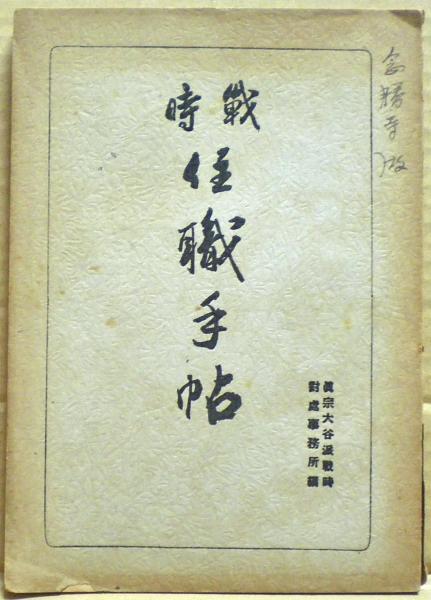 戰時
住職手帖
眞宗大谷派戰時
對處事務所編